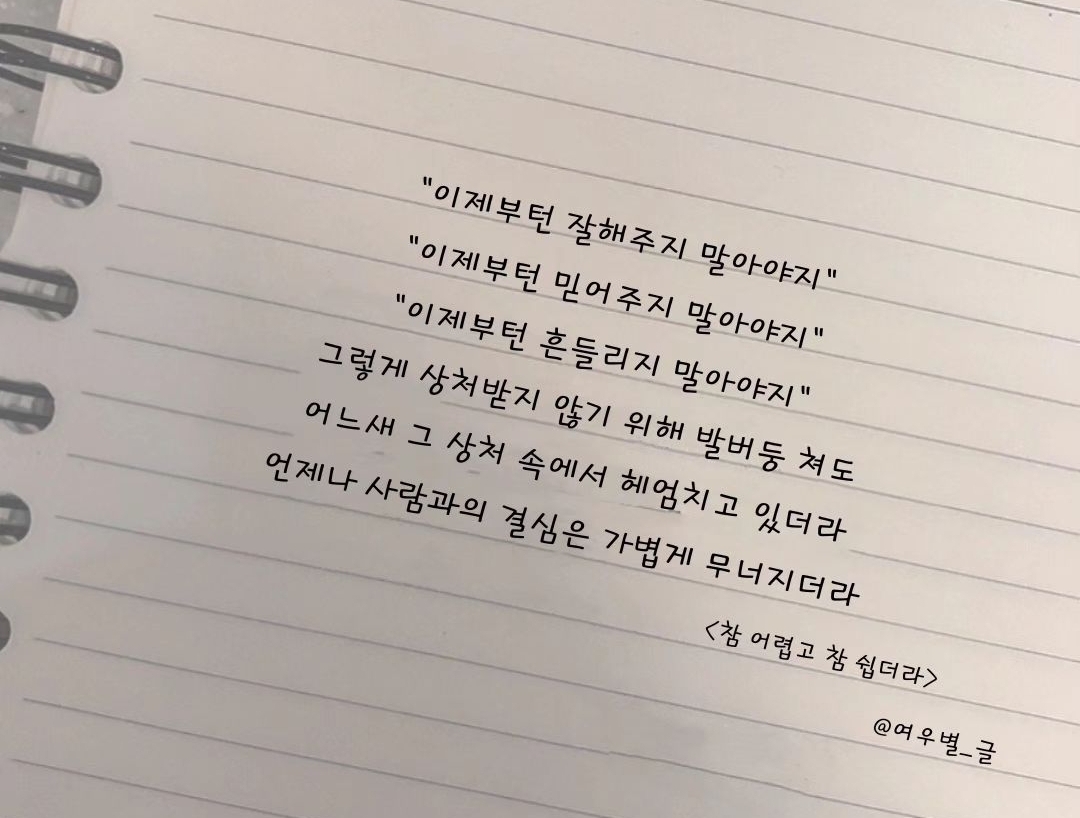 "이제부턴 잘해주지 말아야지"
"이제부턴 믿어주지 말아야지"
"이제부턴 흔들리지 말아야지"
그렇게 상처받지 않기 위해 발버둥 쳐도
어느새 그 상처 속에서 헤엄치고 있더라
언제나 사람과의 결심은 가볍게 무너지더라
<참 어렵고 참 쉽더라>
@여우별_글